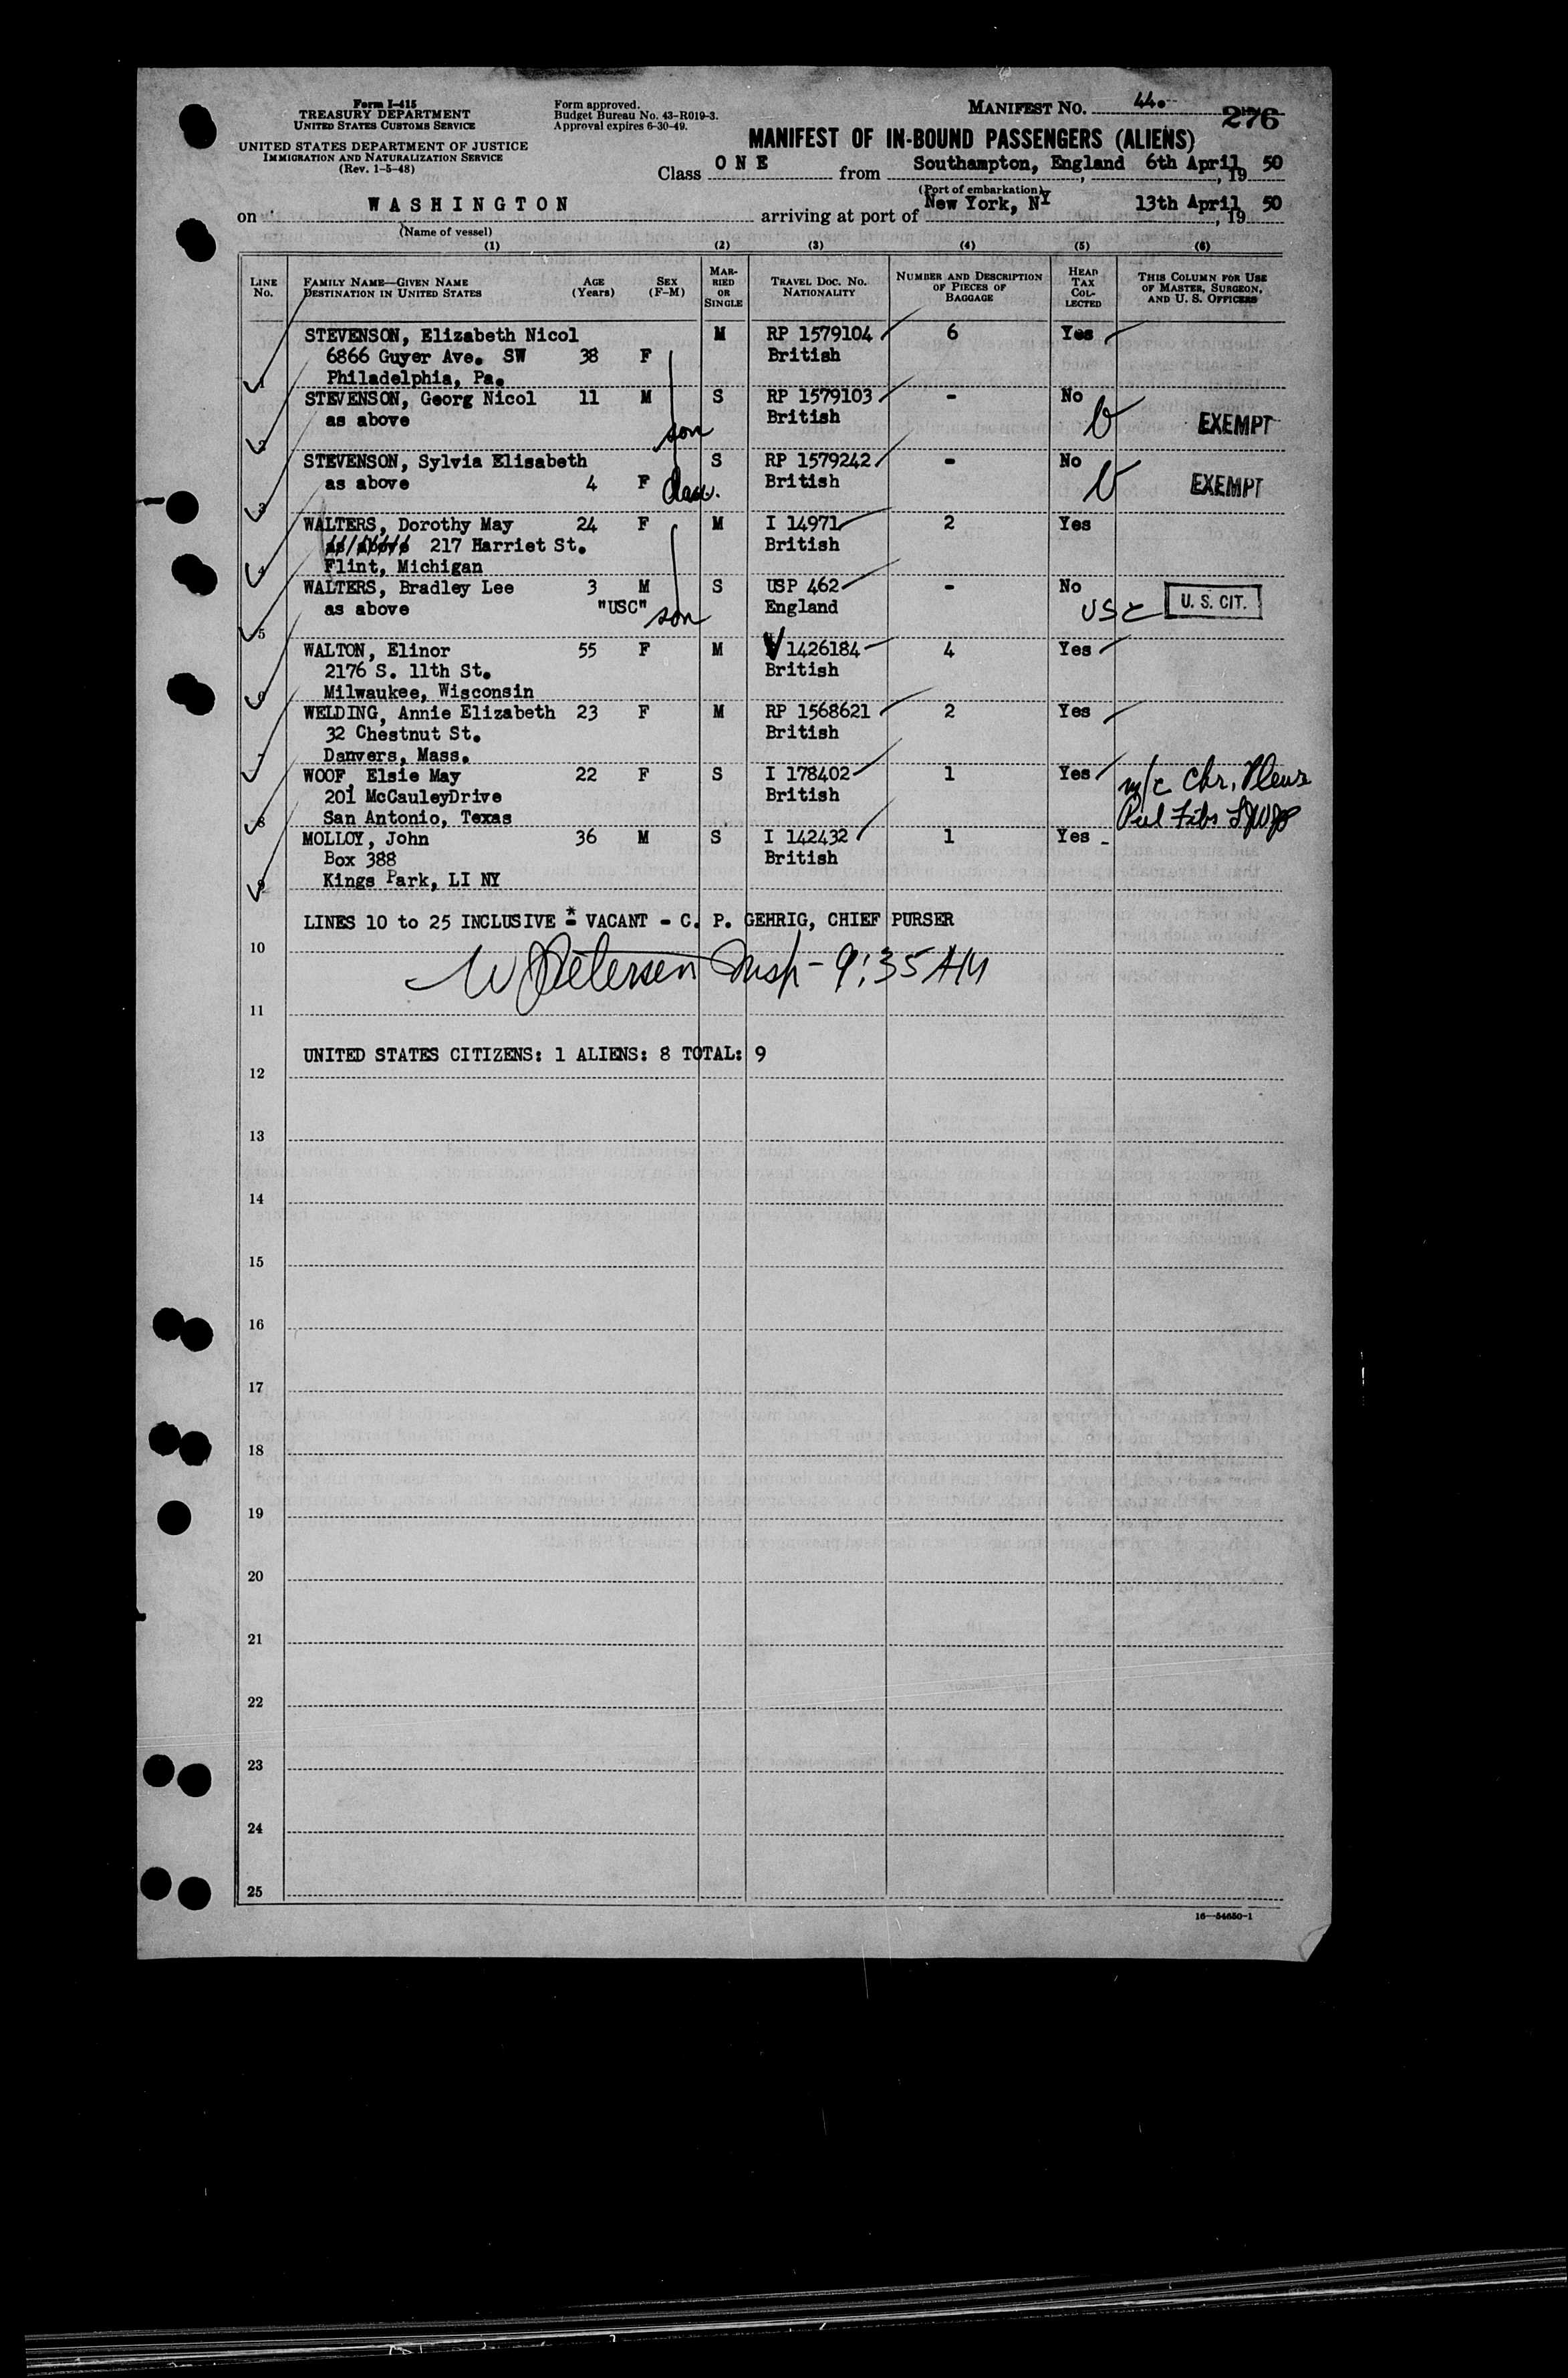 Form I-415
TREASURY DEPARTMENT
UNITED STATES CUSTOMS SERVICE
UNITED STATES DEPARTMENT OF JUSTICE
IMMIGRATION AND NATURALIZATION SERVICE
(Rev. 1-5-48)
Form approved.
Budget Bureau No. 43-R019-3.
Approval expires 6-30-49.
MANIFEST NO. 44. 276
MANIFEST OF IN-BOUND PASSENGERS (ALIENS)
Class O N E from Southampton, England 6th April, 19 50
(Port of embarkation)
on W A S H I N G T O N arriving at port of New York, NY 13th April, 19 50
(Name of vessel)
(1) (2) (3) (4) (5) (6)
LINE No. FAMILY NAME—GIVEN NAME DESTINATION IN UNITED STATES AGE (Years) SEX (F-M) MARRIED OR SINGLE TRAVEL DOC. NO. NATIONALITY NUMBER AND DESCRIPTION OF PIECES OF BAGGAGE HEAD TAX COLLECTED THIS COLUMN FOR USE OF MASTER, SURGEON, AND U. S. OFFICERS
STEVENSON, Elizabeth Nicol M RP 1579104 6 Yes
6866 Guyer Ave. SW 38 F British
1 Philadelphia, Pa.
STEVENSON, Georg Nicol 11 M S RP 1579103 - No
2 as above son British EXEMPT
STEVENSON, Sylvia Elisabeth S RP 1579242 - No
3 as above 4 F dau. British EXEMPT
WALTERS, Dorothy May 24 F M I 14971 2 Yes
as above 217 Harriet St. British
4 Flint, Michigan
WALTERS, Bradley Lee 3 M S USP 462 - No
as above "USC" son England USC U. S. CIT.
5
WALTON, Elinor 55 F M V 1426184 4 Yes
2176 S. 11th St. British
6 Milwaukee, Wisconsin
WELDING, Annie Elizabeth 23 F M RP 1568621 2 Yes
32 Chestnut St. British
7 Danvers, Mass.
WOOF, Elsie May 22 F S I 178402 1 Yes m/c Chr. Pleur
201 McCauleyDrive British Pul Fibs
8 San Antonio, Texas
MOLLOY, John 36 M S I 142432 1 Yes -
Box 388 British
9 Kings Park, LI NY
LINES 10 to 25 INCLUSIVE * - VACANT - C. P. GEHRIG, CHIEF PURSER
10
W Petersen Insp - 9:35 AM
11
UNITED STATES CITIZENS: 1 ALIENS: 8 TOTAL: 9
12
13
14
15
16
17
18
19
20
21
22
23
24
25
16—54650-1